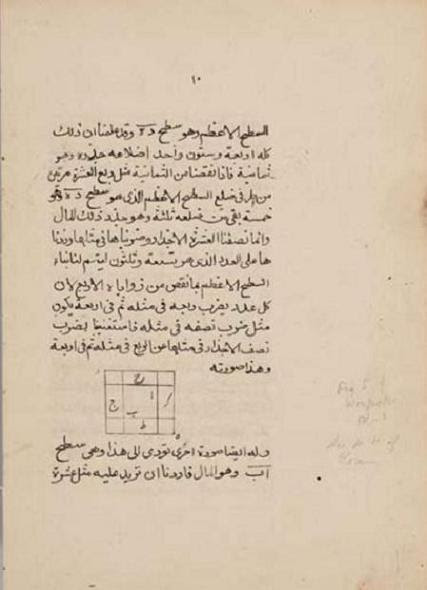 ١٠
السطح الاعظم وهو سطح د ه وقد علمنا ان ذلك
كله اربعة وستون واحد اضلاعه جذره وهو
ثمانية فاذا نقصنا من الثمانية مثل ربع العشرة مرتين
من طرفي ضلع السطح الاعظم الذي هو سطح د ه وهو
خمسة بقي من ضلعه ثلثة وهو جذر ذلك المال
وانما نصفنا العشرة الاجذار وضربناها في مثلها وزدنا
ها على العدد الذي هو تسعة وثلثون ليتم لنا بناء
السطح الاعظم بما نقص من زواياه الاربع لان
كل عدد يضرب ربعه في مثله ثم في اربعة يكون
مثل ضرب نصفه في مثله فاستغنينا بضرب
نصف الاجذار في مثلها عن الربع في مثله ثم في اربعة
وهذا صورته
ح
ج
ا
ب
ط
ه
وله ايضا صورة اخرى تؤدى الى هذا وهي سطح
اب وهو المال فاردنا ان نزيد عليه مثل عشرة
Fig 5